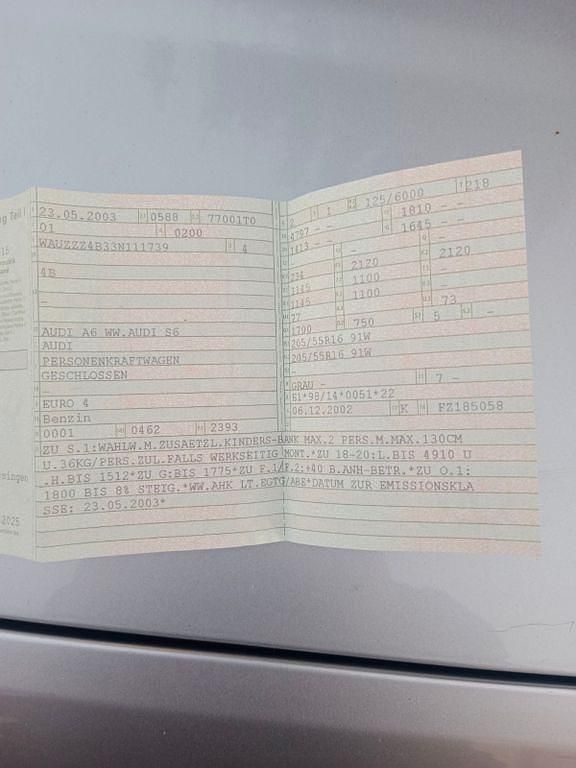 23.05.2003 0588 77001T0
01 0200
WAUZZZ4B33N111739 4
4B
-
AUDI A6 WW.AUDI S6
AUDI
PERSONENKRAFTWAGEN
GESCHLOSSEN
-
EURO 4
Benzin
0001 0462 2393
2 1 125/6000 218
4797 - - 1810 - -
1413 - - 1645 - -
- -
734 2120 2120
1145 1100 -
1145 1100 -
77 73
1700 750 5 -
205/55R16 91W
205/55R16 91W
-
GRAU - 7 -
E1*98/14*0051*22
06.12.2002 K FZ185058
ZU S.1:WAHLW.M.ZUSAETZL.KINDERS-BANK MAX.2 PERS.M.MAX.130CM
U.36KG/PERS.ZUL.FALLS WERKSEITIG MONT.*ZU 18-20:L.BIS 4910 U
.H.BIS 1512*ZU G:BIS 1775*ZU F.1/F.2:+40 B.ANH-BETR.*ZU O.1:
1800 BIS 8% STEIG.*WW.AHK LT.EGTG/ABE*DATUM ZUR EMISSIONSKLA
SSE: 23.05.2003*